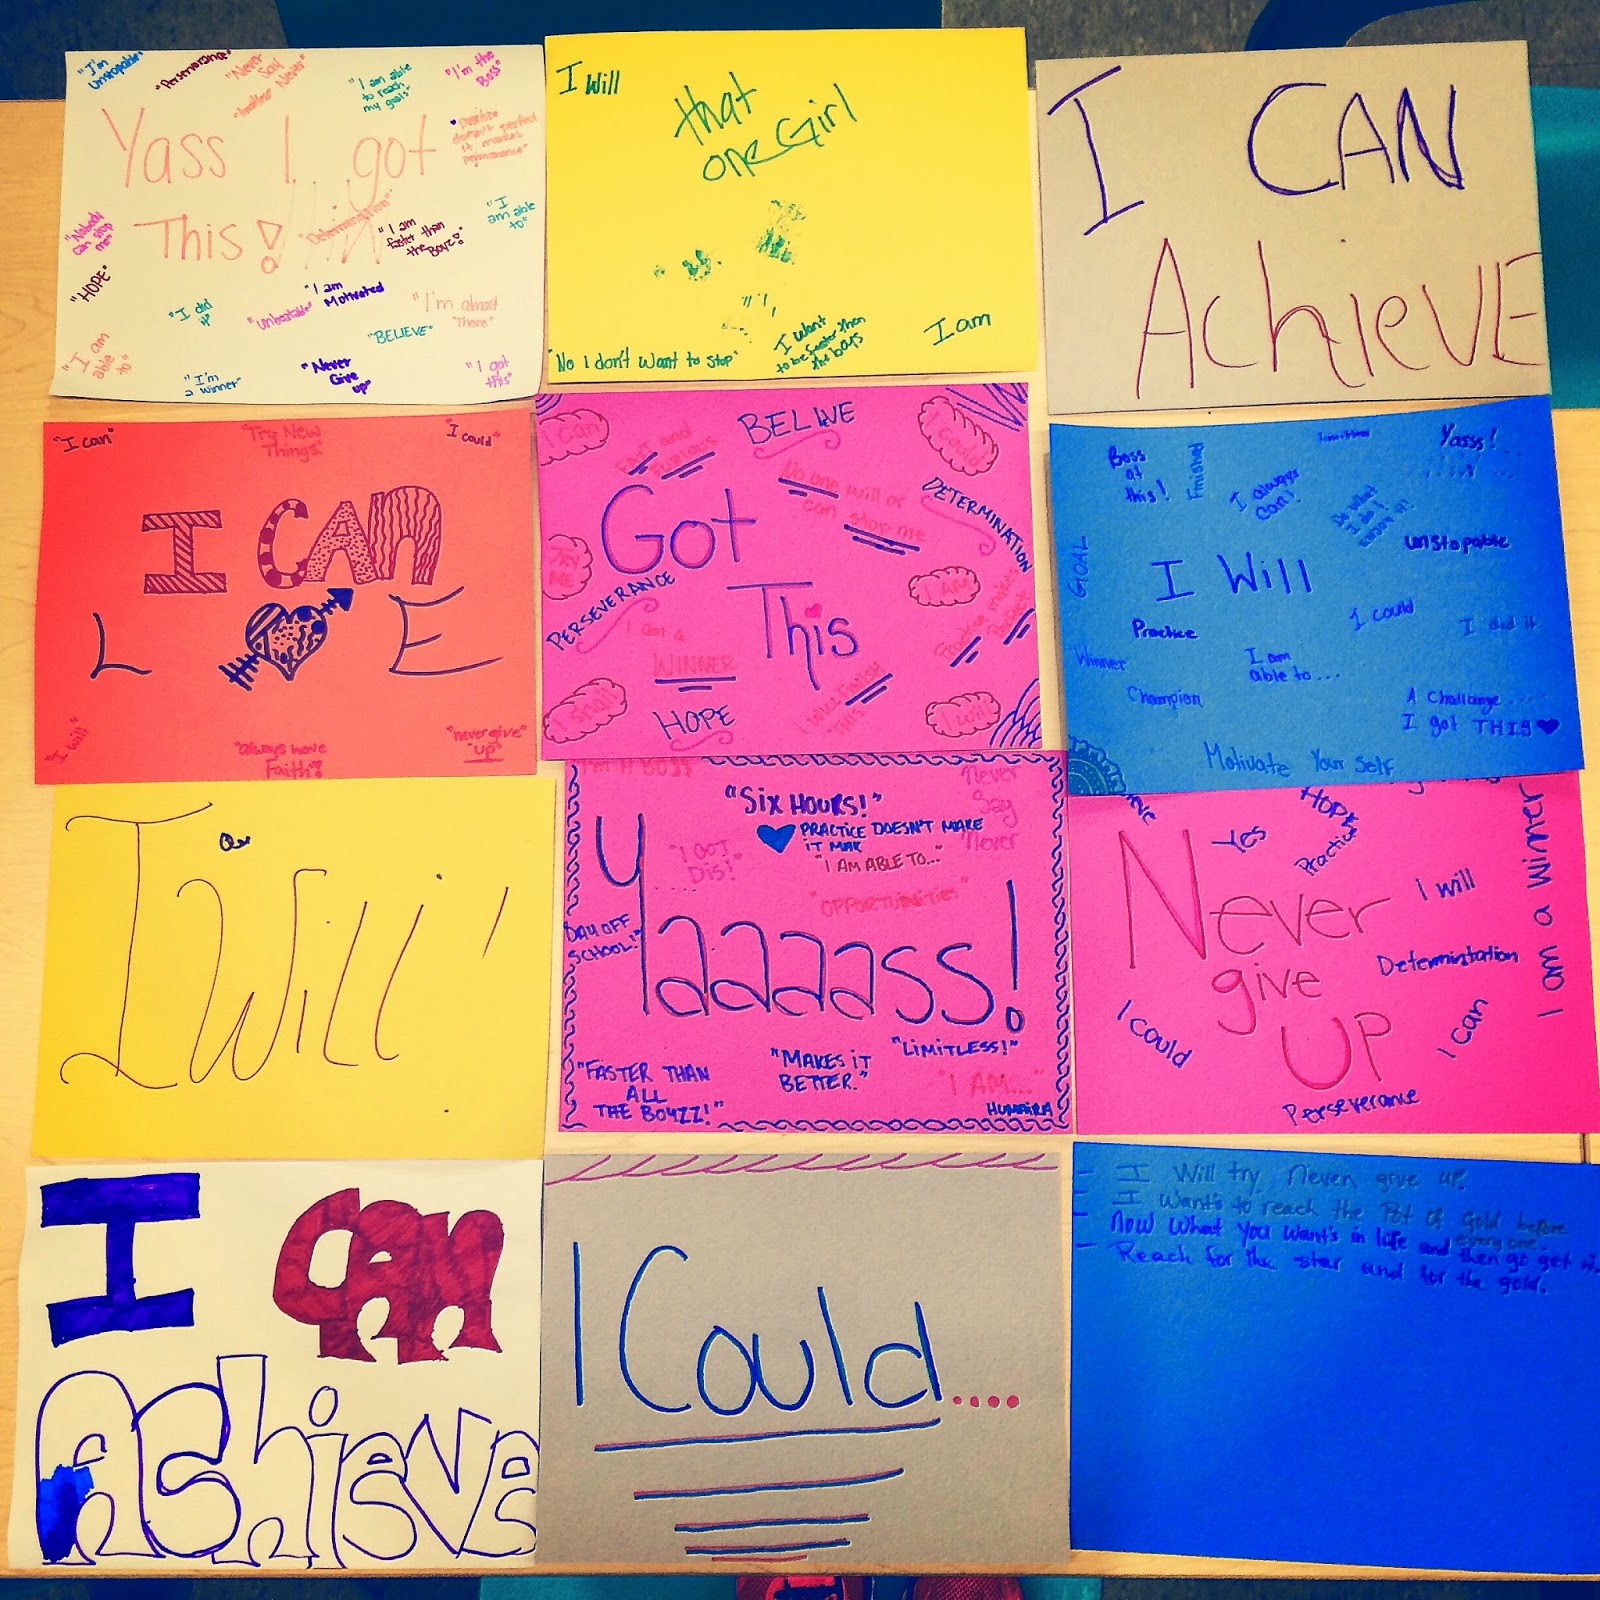 "I'm
Unstopable"
"Perserverance"
"Never
Say
Never"
"limitless
"I am able
to reach
my goals"
"I'm the
Boss"
Yass I got
This!
Practice
doesn't perfect
it makes
permanence"
"Nobody
can stop
me"
"Determination"
"I am
faster than
the Boyz"
"I
am able
to"
"HOPE"
"I did
it"
"unbeatable"
"I am
Motivated
"I'm almost
There"
"BELIEVE"
"I am
able
to"
"I'm
a winner"
"Never
Give
up"
"I got
this"
I Will
that
one Girl
"No I don't want to stop"
I want
to be faster then
the boys
I am
I CAN
AchIeVE
"I can"
"Try New
Things"
"I could"
I CAN
L E
"I will"
"always have
Faith"!
"never give
up"
I can
Fast and
Furious
BELIVE
I could
Got
This
No one will or
can stop me
DETERMINATION
TRY
ME
PERSEVERANCE
I AM
I am a
WINNER
I WILL FINISH
THIS
I shall
HOPE
I will
Boss
at
this!
Finished
limitless
Yasss!
I always
Can!
Do what
I do I
know it!
unstopable
GOAL
I Will
Practice
I could
I did it
Winner
I am
able to...
Champion
A Challange....
I got THIS
Motivate Your Self
I Will!
I'm A BOSS
"SIX HOURS!"
Never
Say
Never
PRACTICE DOESN'T MAKE
IT MAK
"I GOT
DIS!"
"I AM ABLE TO..."
"OPPORTUINITIES"
"DAY OFF
SCHOOL!"
Yaaaass!
"FASTER THAN
ALL
THE BOYZZ!"
"MAKES IT
BETTER."
"LIMITLESS!"
"I AM..."
HUMAIRA
Yes
HOPE
Practice
Never
give
UP
I will
I am a Winner
Determintation
I could
I can
Perseverance
I CAN
AChieve
I Could....
- I Will try. Never give up.
- I Want's to reach the Pot of Gold before
every one.
- Now What you want's in life and then go get it.
- Reach for the star and for the gold.